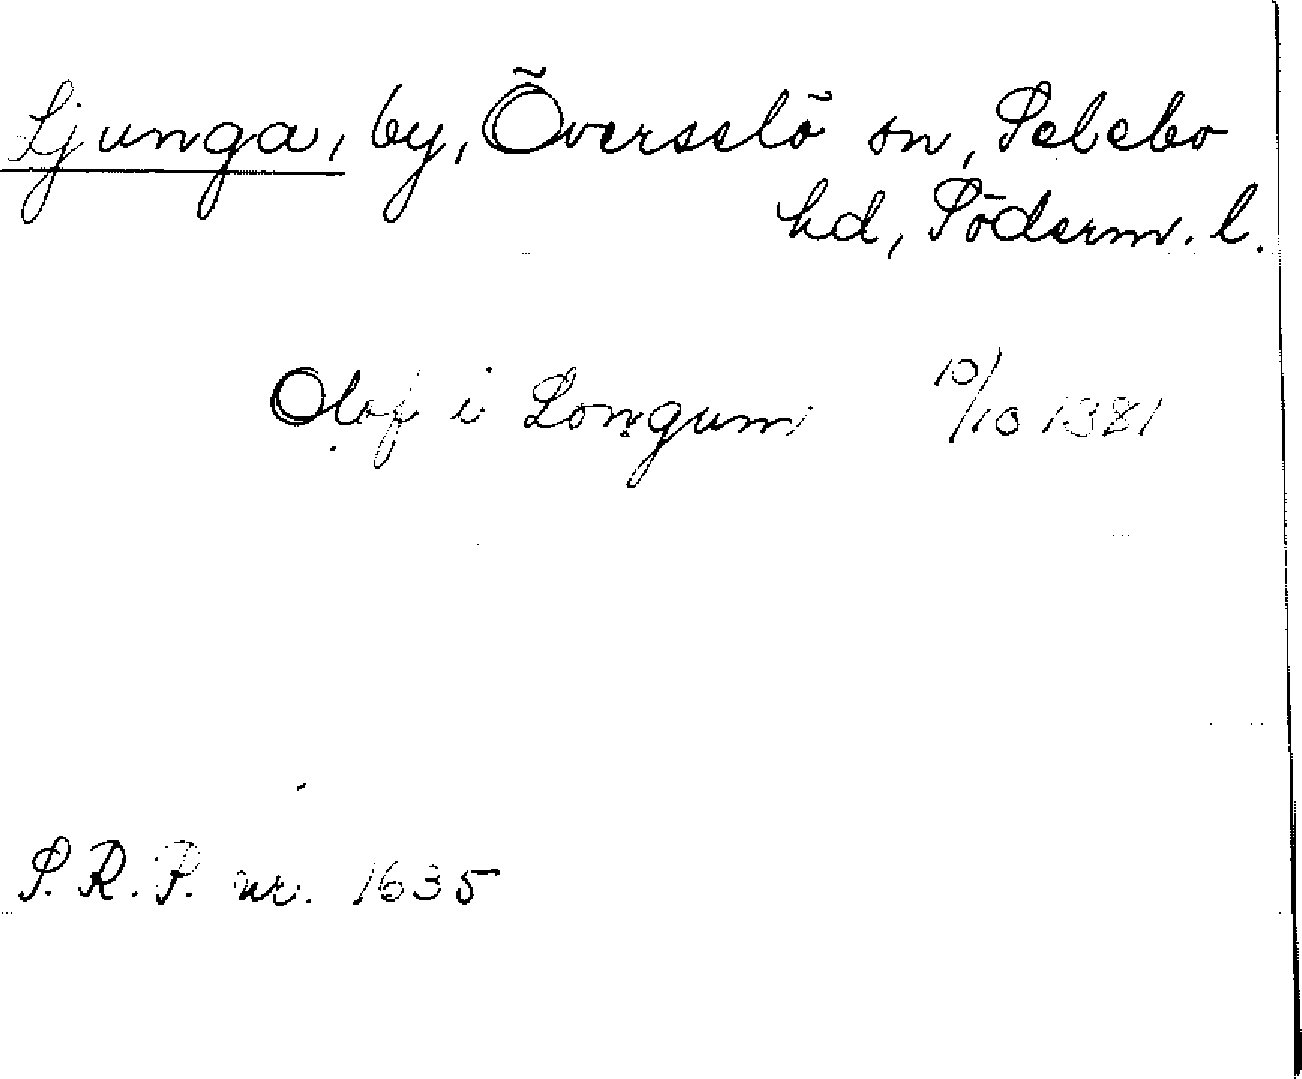 Ljunga, by, Överselö sn, Selebo
hd, Söderm. l.
Olof i Longum 10/10 1381
S.R.P. nr. 1635